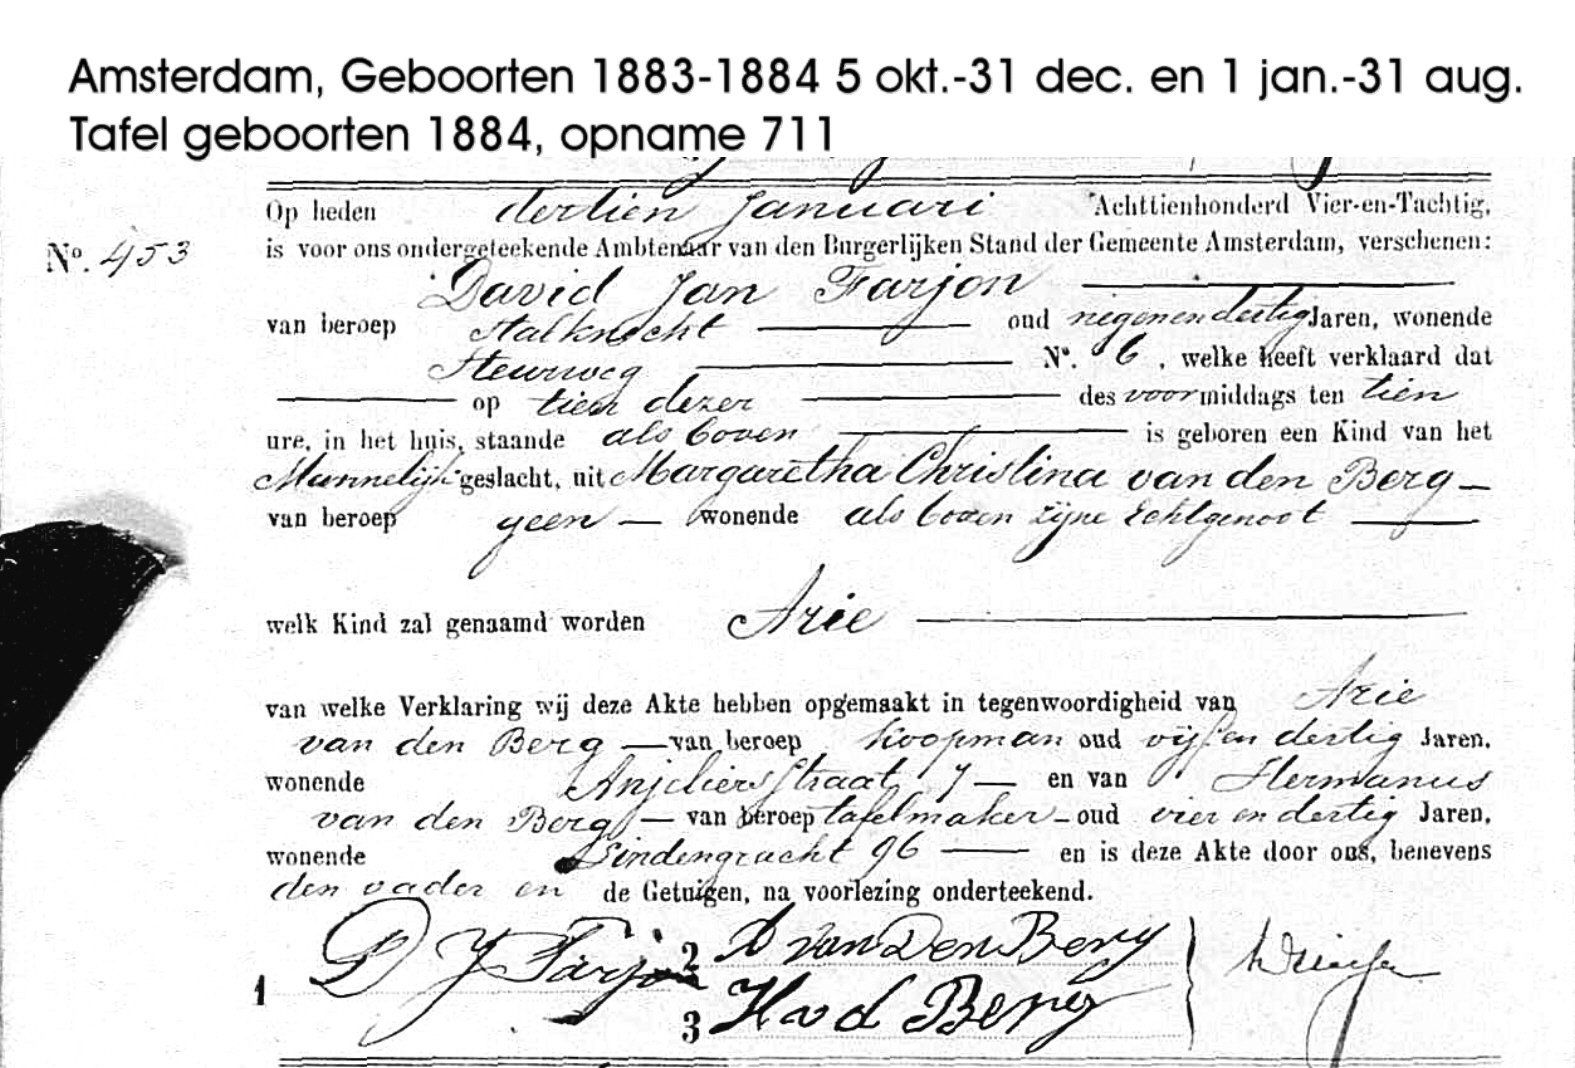 Amsterdam, Geboorten 1883-1884 5 okt.-31 dec. en 1 jan.-31 aug.
Tafel geboorten 1884, opname 711
Op heden dertien Januari Achttienhonderd Vier-en-Tachtig,
No. 453 is voor ons ondergeteekende Ambtenaar van den Burgerlijken Stand der Gemeente Amsterdam, verschenen:
David Jan Farjon
van beroep Stalknecht oud negenendertig Jaren, wonende
No. 6, welke heeft verklaard dat
op tien dezer des voormiddags ten tien
ure, in het huis, staande als boven is geboren een Kind van het
Mannelijk geslacht, uit Margaretha Christina van den Berg
van beroep geen wonende als boven zijne Echtgenoot
welk Kind zal genaamd worden Arie
van welke Verklaring wij deze Akte hebben opgemaakt in tegenwoordigheid van Arie
van den Berg van beroep Koopman oud vijf en dertig Jaren,
wonende Anjeliersstraat 7 en van Hermanus
van den Berg van beroep tafelmaker oud vier en dertig Jaren,
wonende Lindengracht 96 en is deze Akte door ons, benevens
den vader en de Getuigen, na voorlezing onderteekend.
1 D J Farjon 2 A van Den Berg
3 H v d Berg